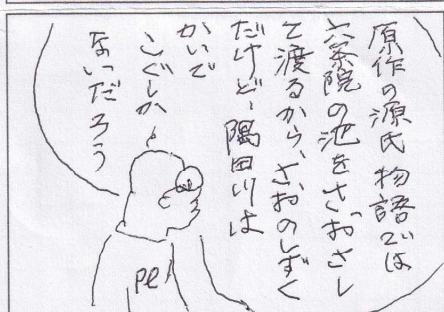 原作の源氏物語では
六条院の池をさおさし
て渡るから、さおのしずく
だけど、隅田川は
かいで
こぐしか
ないだろう
PE